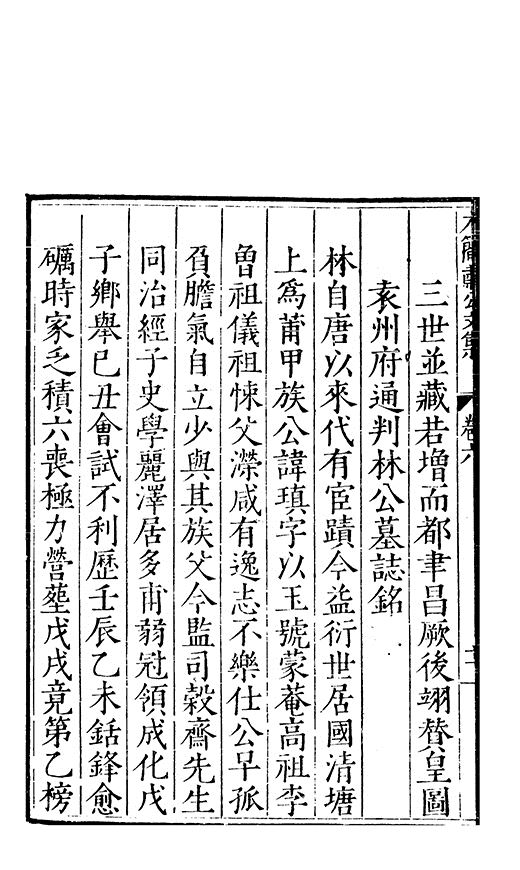 三世並藏若増而都聿昌厥後翊賛皇圖
袁州府通判林公墓誌銘
林自唐以來代有宦蹟今益衍世居國清塘
上爲莆甲族公諱瑱字以玉號蒙菴高祖李
曾祖儀祖悚父濴咸有逸志不樂仕公早孤
負膽氣自立少與其族父今監司穀齋先生
同治經子史學麗澤居多甫弱冠領成化戊
子鄉舉已丑會試不利歷壬辰乙未銛鋒愈
礪時家乏積六喪極力營塟戊戌竟第乙榜
公文集
卷六